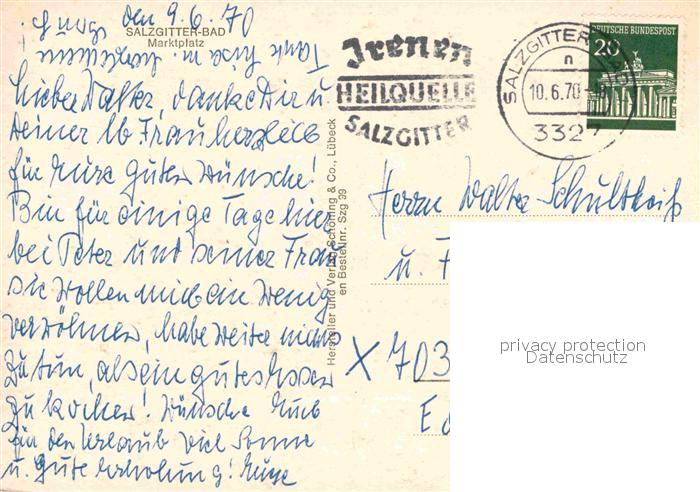 den 9.6.70
SALZGITTER-BAD
Marktplatz
Lieber Walter, danke Dir u.
Deiner lb Frau herzlich
für Eure guten Wünsche!
Bin für einige Tage hier
bei Peter und seiner Frau
sie wollen mich ein wenig
verwöhnen, habe weiter nichts
zu tun, als ein gutes Essen
zu kochen! Wünsche Euch
für den Urlaub viel Sonne
u. gute Erholung! Eure
Tante
Hersteller und Verlag Schöning & Co., Lübeck
en Bestellnr. Szg 39
Irenen
HEILQUELLE
SALZGITTER
SALZGITTER-BAD
n
10.6.70-18
3327
DEUTSCHE BUNDESPOST
20
Herrn Walter Schultheiß
u. F
X 703
E
privacy protection
Datenschutz